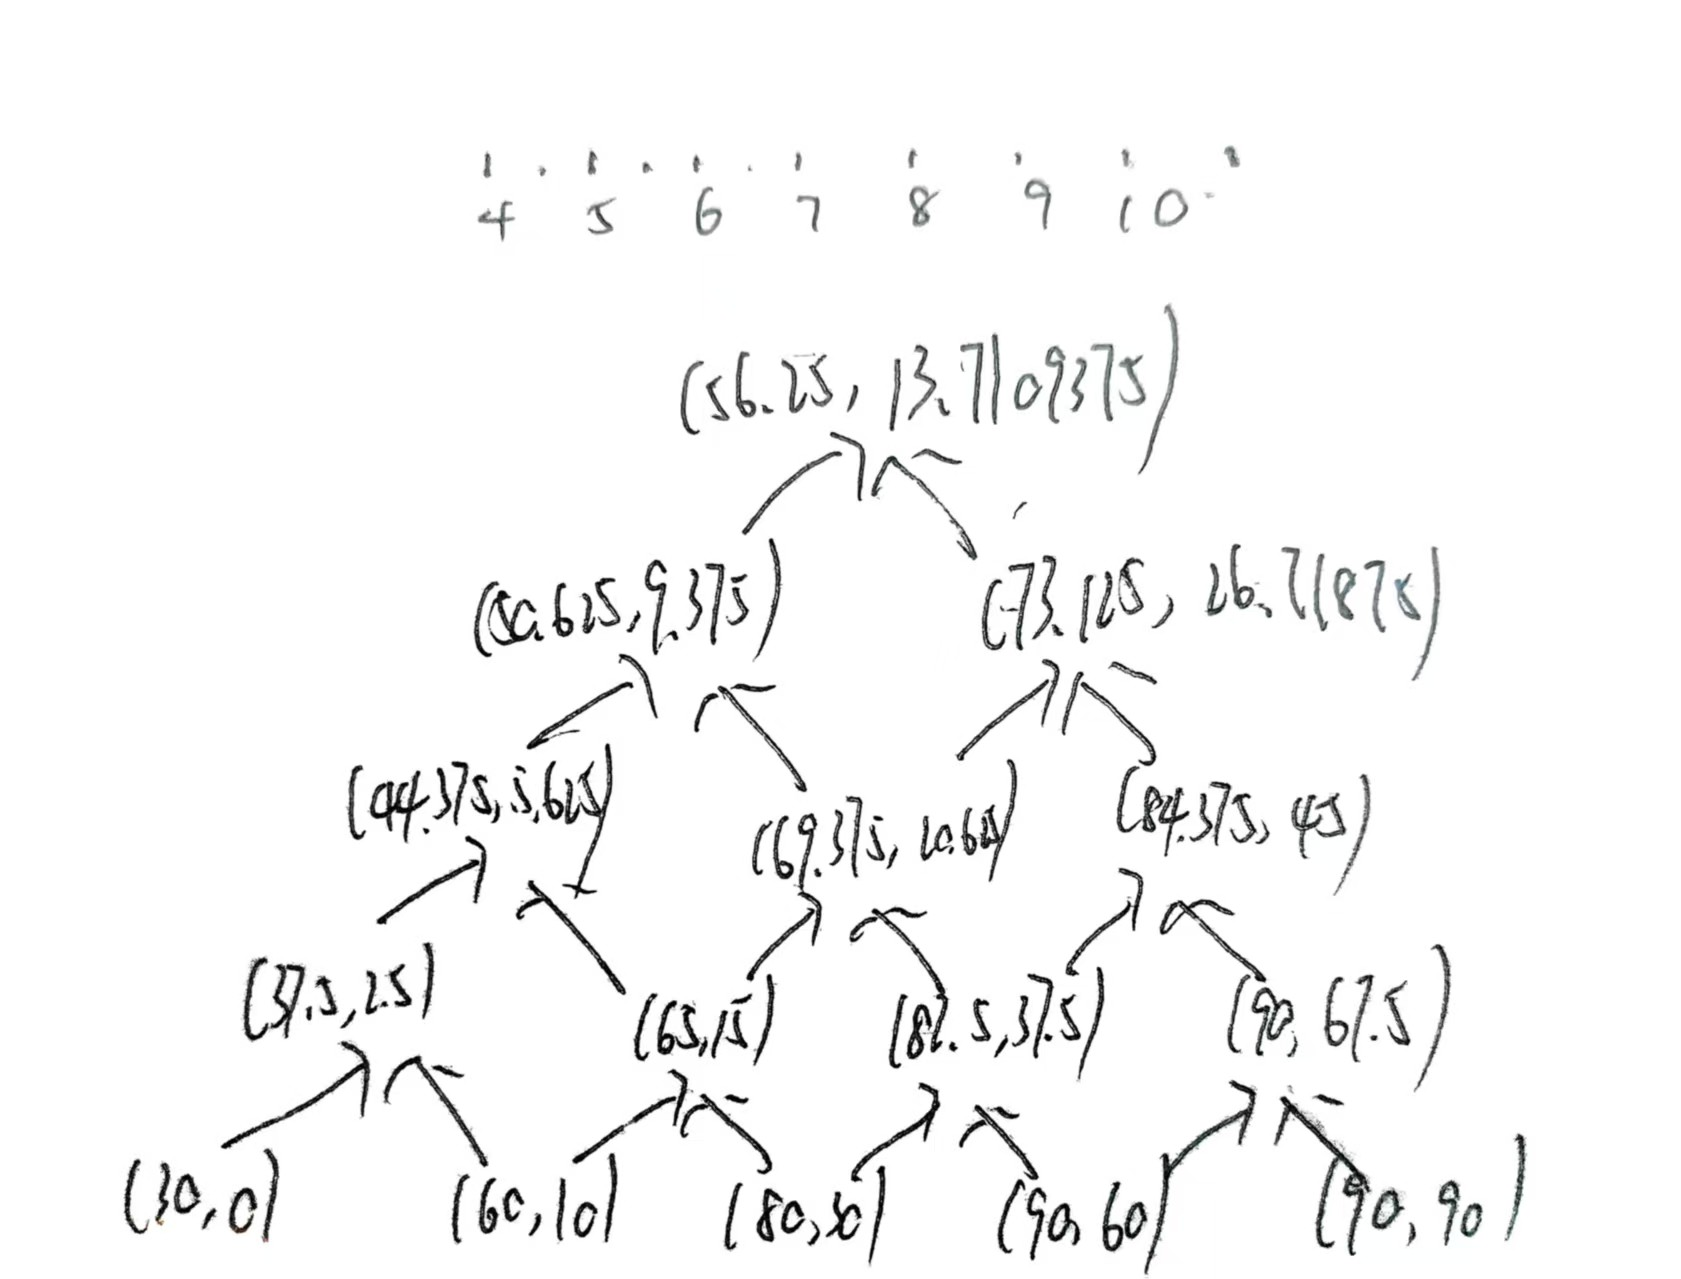 4 5 6 7 8 9 10
(56.25, 13.7109375)
(50.625, 9.375) (73.125, 26.71875)
(44.375, 5.625) (69.375, 20.625) (84.375, 45)
(37.5, 2.5) (65, 15) (82.5, 37.5) (90, 67.5)
(30, 0) (60, 10) (80, 30) (90, 60) (90, 90)